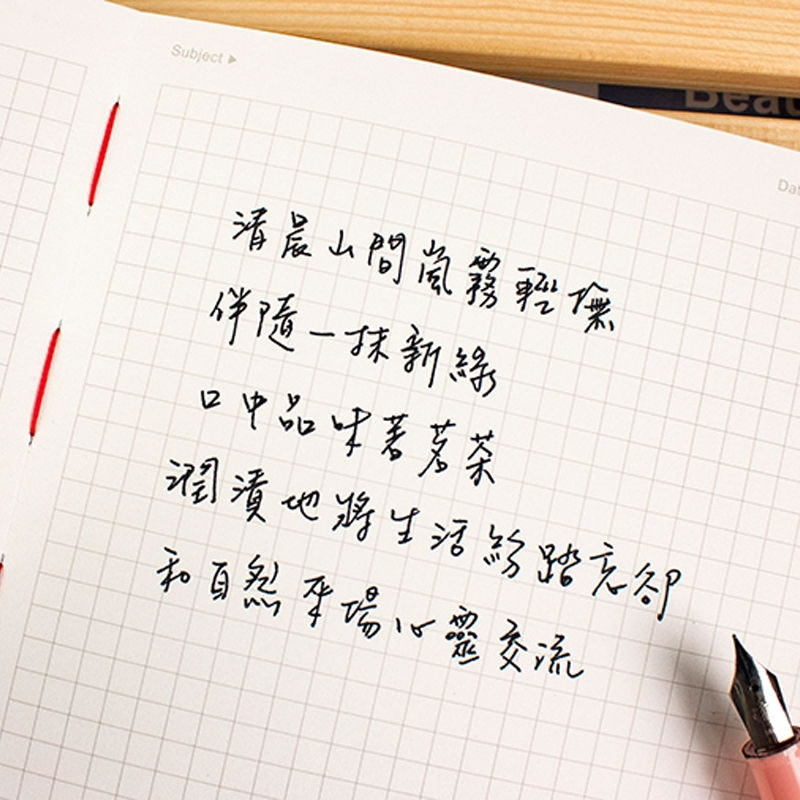 Subject
Beau
Dat
清晨山間嵐霧輕撫
伴隨一抹新綠
口中品味著茗茶
潤漬地將生活紛踏忘卻
和自然來場心靈交流